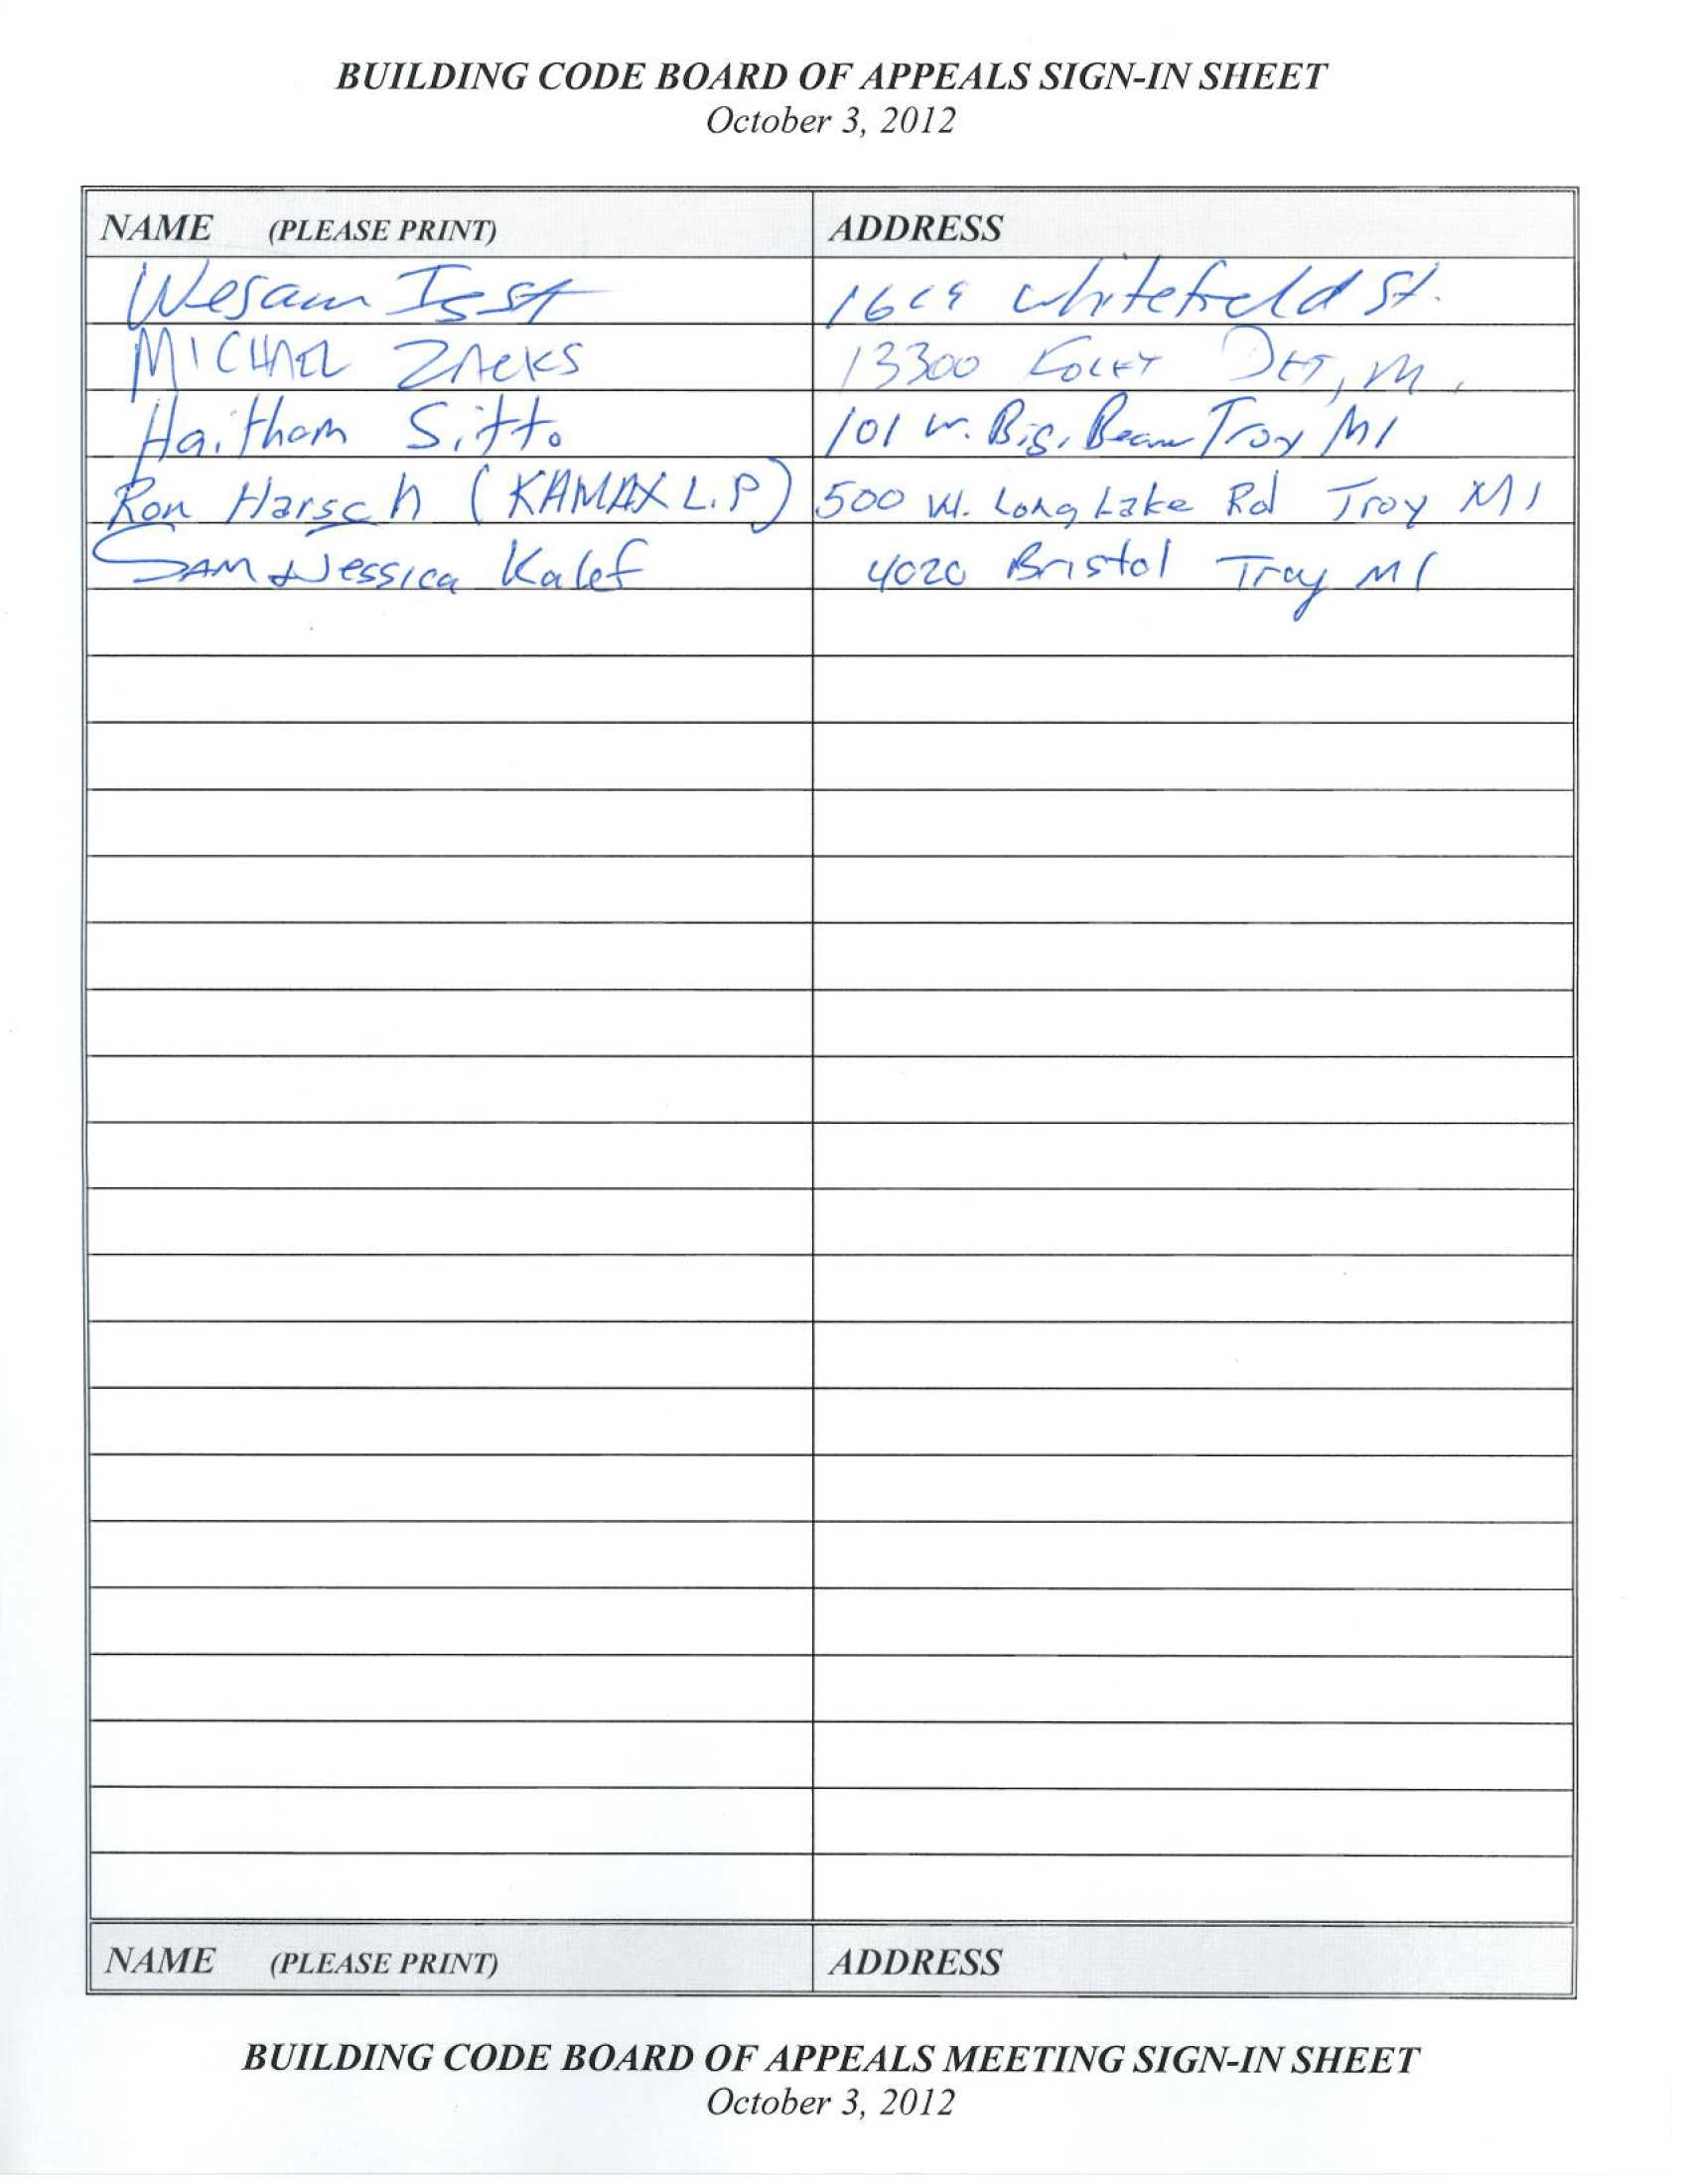 BUILDING CODE BOARD OF APPEALS SIGN-IN SHEET
October 3, 2012
NAME (PLEASE PRINT) ADDRESS
Wesam Whitefield St.
MICHAEL ZACKS 13300 FOLEY DET, MI.
Haitham Sitto 101 W. Big. Beaver Troy MI
Ron Harsch (KAMAX L.P) 500 W. Long Lake Rd Troy MI
SAM & Jessica Kalef 4020 Bristol Troy MI
NAME (PLEASE PRINT) ADDRESS
BUILDING CODE BOARD OF APPEALS MEETING SIGN-IN SHEET
October 3, 2012